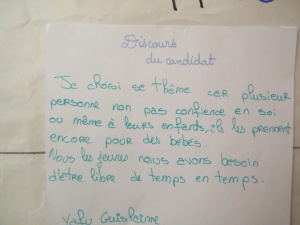 Discours
du candidat
Je choisi se thême car plusieur
personne non pas confience en soi
ou même à leurs enfants, ils les prennent
encore pour des bébés.
Nous les jeunes nous avons besoin
d'être libre de temps en temps.